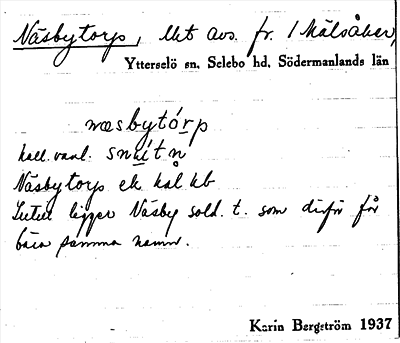 Näsbytorp, lht avs. fr. 1 Mälsåker,
Ytterselö sn, Selebo hd, Södermanlands län
næsbytórp
kall. vanl.
Näsbytorps ek hal hb
ligger Näsby sold. t. som därför får
bära samma namn.
Karin Bergström 1937